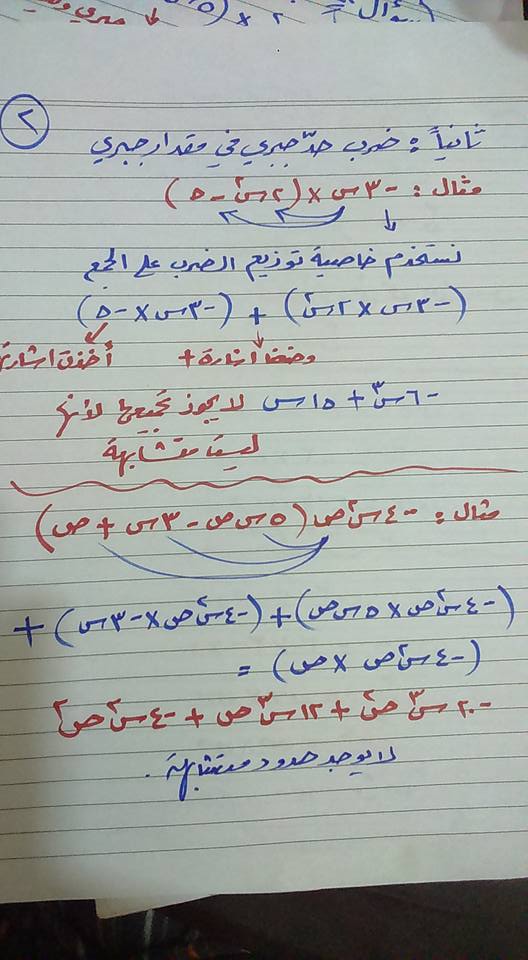 ٢
ثانياً : ضرب حدّ جبري في مقدار جبري
مثال : -٣س × (٢س² - ٥)
نستخدم خاصية توزيع الضرب على الجمع
(-٣س × ٢س²) + (-٣س × -٥)
وضعنا اشارة + أخذت اشارته
-٦س³ + ١٥س لا يجوز تجميعها لأنها
ليست متشابهة
مثال : -٤س²ص (٥س ص - ٣س + ص)
(-٤س²ص × ٥س ص) + (-٤س²ص × -٣س) +
(-٤س²ص × ص) =
-٢٠س³ص² + ١٢س³ص + -٤س²ص²
لا يوجد حدود متشابهة .